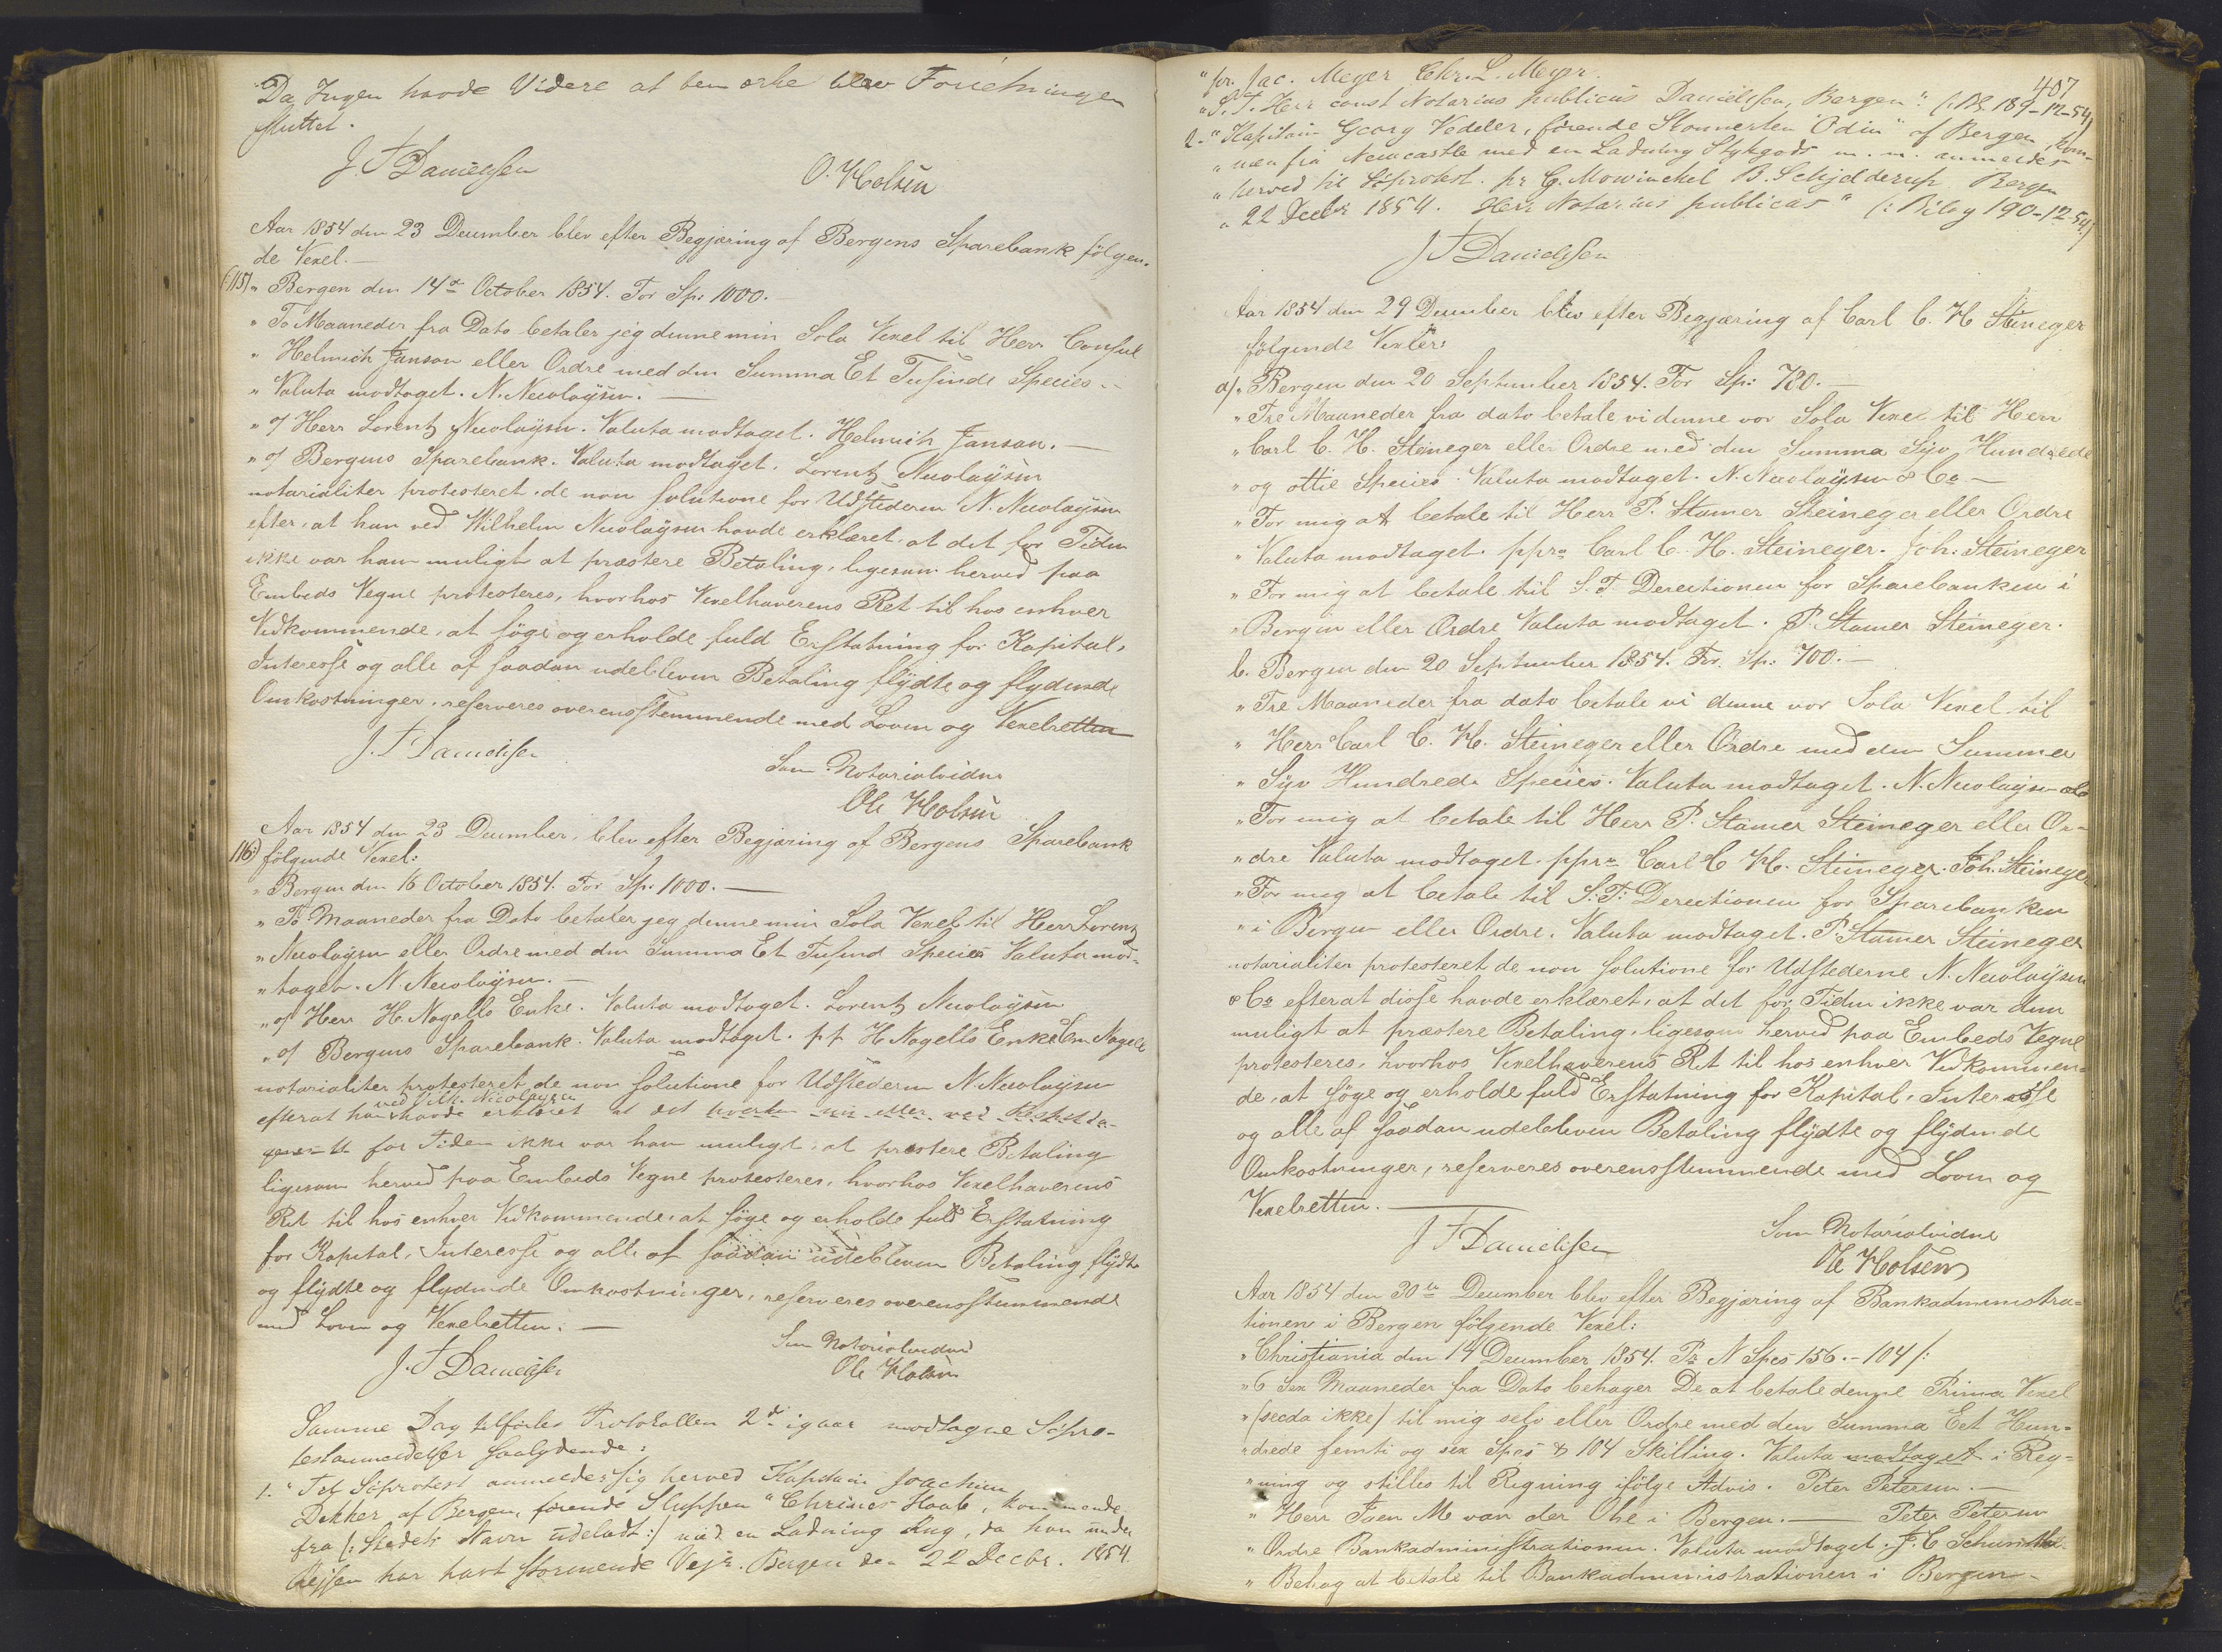 Da Ingen havde Videre at bemærke blev Forretningen
sluttet.
J. F Danielssen
O. Holsen
Aar 1854 den 23 December blev efter Begjæring af Bergens Sparebank følgen-
de Vexel.—
(115) „ Bergen den 14de October 1854. For Sp: 1000.
„ To Maaneder fra Dato betaler jeg denne min Sola Vexel til Herr Consul
„ Helmich Janson eller Ordre med den Summa Et Tusinde Species.—
„ Valuta modtaget. N. Nicolaÿsen.—
„ o/ Herr Lorentz Nicolaÿsen. Valuta modtaget. Helmich Janson.—
„ o/ Bergens Sparebank. Valuta modtaget. Lorentz Nicolaÿsen
notarialiter protesteret de non solutione for Udstederen N. Nicolaÿsen
efter, at han ved Wilhelm Nicolaÿsen havde erklæret, at det for Tiden
ikke var ham muligt at præstere Betaling, ligesom herved paa
Embeds Vegne protesteres, hvorhos Vexelhaverens Ret til hos enhver
Vedkommende, at søge og erholde fuld Erstatning for Kapital,
Interesse og alle af saadan udebleven Betaling flÿdte og flydende
Omkostninger, reserveres overensstemmende med Loven og Vexelretten
J. F Danielssen
Som Notorialvidne
Ole Holsen
Aar 1854 den 23 December, blev efter Begjæring af Bergens Sparebank
116) følgende Vexel:
„ Bergen den 16 October 1854. For Sp: 1000.—
„ To Maaneder fra Dato betaler jeg denne min Sola Vexel til Herr Lorenz
„ Nicolaÿsen eller Ordre med den Summa Et Tusind Species Valuta mod-
„ taget. N. Nicolaÿsen.—
„ o/ Herr H. Nagells Enke. Valuta modtaget. Lorentz Nicolaÿsen
„ o/ Bergens Sparebank. Valuta modtaget. pp H Nagells Enke Em Nagell
notarialiter protesteret, de non solutione for Udstederen N Nicolaÿsen
ved Vilh. Nicolaysen
efterat han havde erklæret at det hverken nu eller ved
for Tiden ikke var ham muligt, at præstere Betaling
ligesom herved paa Embeds Vegne protesteres, hvorhos Vexelhaverens
Ret til hos enhver Vedkommende, at søge og erholde fuld Erstatning
for Kapital, Interesse og alle af saadan udebleven Betaling flÿdte
og flÿdte og flydende Omkostninger, reserveres overensstemmende
med Loven og Vexelretten.—
J. F Danielssen
Som Notorialvidne
Ole Holsen
Samme Dag tilførtes Protokollen 2de igaar modtagne Søpro-
testanmeldelser saalydende:
1. “Til Søprotest anmelder sig herved Kapitain Joachim
Dekker af Bergen, førende Sluppen “Chrines Haab, kommende
fra (: Stedets Navn udeladt :) med en Ladning Rug, da han under
Rejsen har havt stormende Vejr. Bergen den 22 Decbr. 1854.
407
“for. Jac. Meyer Chr. L. Meyer.
“S. T. Herr const Notarius publicus Danielssen, Bergen”. (: Bil. 189-12-54)
2. “Kapitain Georg Vedeler, førende Skonnerten “Odin” af Bergen, kom-
„ men fra Newcastle med en Ladning Stykgods m. m. anmelder
„ herved til Søprotest. pr G. Mowinckel B. Schjelderup Bergen
„ 22 Decbr 1854. Herr Notarius publicus” (: Bilag 190-12-54)
J F Danielssen
Aar 1854 den 29 December blev efter Begjæring af Carl C. H Steineger
følgende Vexler:
a) „ Bergen den 20 September 1854. For Sp: 780.—
„ Tre Maaneder fra dato betale vi denne vor Sola Vexel til Herr
„ Carl C. H. Steineger eller Ordre med den Summa Syv Hundrede
„ og ottie Species. Valuta modtaget. N. Nicolaÿsen & Co—
„ For mig at betale til Herr P. Stamer Steineger eller Ordre
„ Valuta modtaget. ppra Carl C. H. Steineger. Joh. Steineger
„ For mig at betale til S. T. Derectionen for Sparebanken i
„ Bergen eller Ordre Valuta modtaget. P. Stamer Steineger.
b. Bergen den 20 September 1854. For. Sp: 700.—
„ Tre Maaneder fra dato betale vi denne vor Sola Vexel til
„ Herr Carl C. H. Steineger eller Ordre med den Summa
„ Syv Hundrede Species. Valuta modtaget. N. Nicolaysen & Co
„ For mig at betale til Herr P. Stamer Steineger eller Or-
„ dre Valuta modtaget. ppra Carl C H. Steineger. Joh. Steineger
„ For mig at betale til S. T. Derectionen for Sparebanken
„ i Bergen eller Ordre. Valuta modtaget. P. Stamer Steineger
notarialiter protesteret de non solutione for Udstederne N. Nicolaÿsen
& Co efterat disse havde erklæret, at det for Tiden ikke var dem
muligt at præstere Betaling, ligesom herved paa Embeds Vegne
protesteres, hvorhos Vexelhaverens Ret til hos enhver Vedkommen-
de, at søge og erholde fuld Erstatning for Kapital, Interesse
og alle af saadan udebleven Betaling flÿdte og flÿdende
Omkostninger, reserveres overensstemmende med Loven og
Vexelretten.—
J F Danielssen
Som Notorialvidne
Ole Holsen
Aar 1854 den 30te December blev efter Begjæring af Bankadministra-
tionen i Bergen følgende Vexel:
„ Christiania den 14 December 1854. Pr N Spes 156.-104 /:
„ 6 Sex Maaneder fra Dato behager De at betale denne Prima Vexel
„ (secda ikke) til mig selv eller Ordre med den Summa Eet Hun-
„ drede femti og sex Spes & 104 Skilling. Valuta modtaget i Reg-
„ ning og stilles til Regning ifølge Advis. Peter Petersen.—
„ Herr Joen M van der Ohe i Bergen.— Peter Petersen
„ Ordre Bankadministrationen. Valuta modtaget. J. C
„ Behag at betale til Bankadministrationen i Bergen-